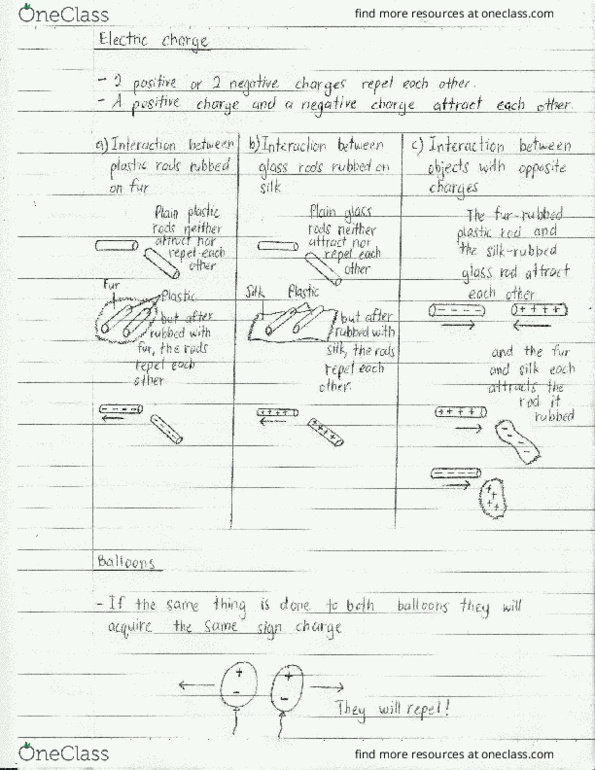 OneClass
find more resources at oneclass.com
Electric charge
- 2 positive or 2 negative charges repel each other.
- A positive charge and a negative charge attract each other.
a) Interaction between
plastic rods rubbed
on fur
Plain plastic
rods neither
attract nor
repel each
other
Fur
Plastic
but after
rubbed with
fur, the rods
repel each
other
- - - -
- - - -
b) Interaction between
glass rods rubbed on
silk
Plain glass
rods neither
attract nor
repel each
other
Silk
Plastic
but after
rubbed with
silk, the rods
repel each
other.
+ + + +
+ + + +
c) Interaction between
objects with opposite
charges
The fur-rubbed
plastic rod and
the silk-rubbed
glass rod attract
each other
- - - -
+ + + +
and the fur
and silk each
attracts the
rod it
rubbed
+ + + +
- - -
- - - -
+ + + +
Balloons
- If the same thing is done to both balloons they will
acquire the same sign charge
+ +
- -
They will repel!
OneClass
find more resources at oneclass.com